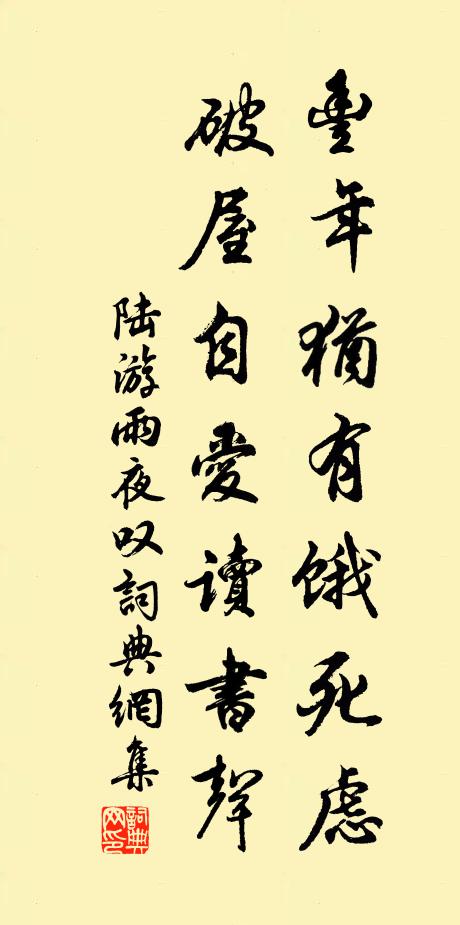 豐年猶有餓死慮
破屋自愛讀書聲
陆游雨夜叹詞典網集
詞典
网印